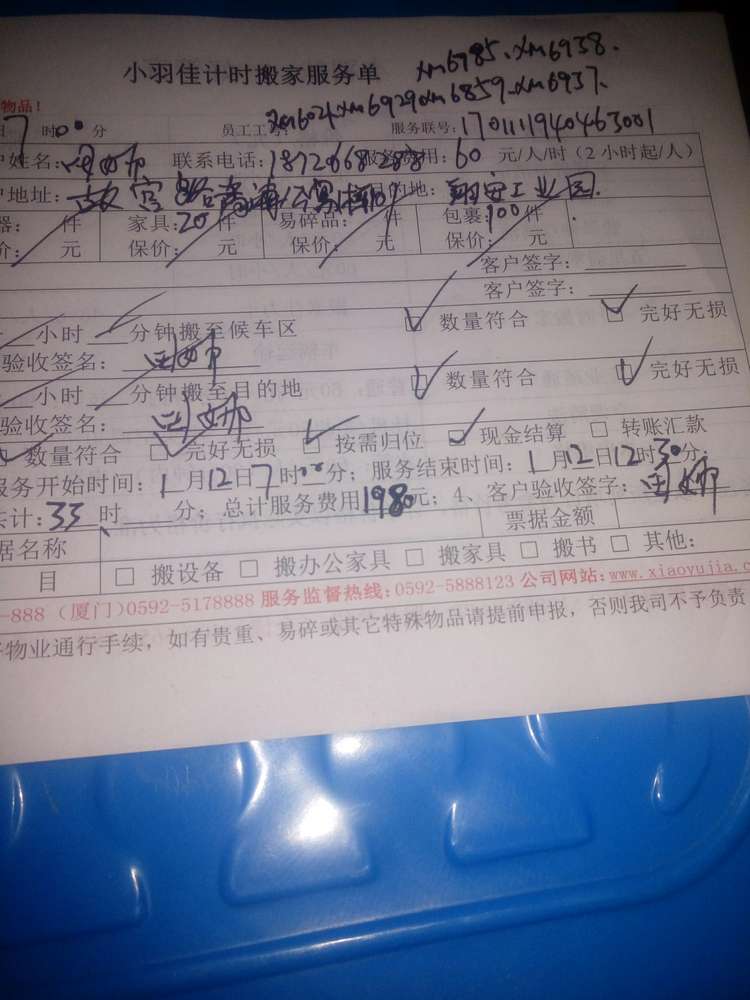 小羽佳计时搬家服务单 xm6985、xm6938.
物品! xm6024xm6929xm6859.xm6937.
7时00分 员工工号: 服务联号:1701111940463001
户姓名: 联系电话:18720668288 服务费用:60元/人/时(2小时起/人)
户地址: 目的地:翔安工业园.
器: 件 家具:20件 易碎品: 件 包裹:100件
价: 元 保价: 元 保价: 元 保价: 元
客户签字:
客户签字:
小时 分钟搬至候车区 数量符合 完好无损
验收签名:
小时 分钟搬至目的地 数量符合 完好无损
验收签名:
数量符合 完好无损 按需归位 现金结算 转账汇款
服务开始时间:1月12日7时00分;服务结束时间:1月12日12时30分.
共计:33时 分;总计服务费用1980元;4、客户验收签字:
票据金额
据名称
目 □ 搬设备 □ 搬办公家具 □ 搬家具 □ 搬书 □ 其他:
-888(厦门)0592-5178888 服务监督热线:0592-5888123 公司网站:www.xiaoyujia.c
物业通行手续,如有贵重、易碎或其它特殊物品请提前申报,否则我司不予负责